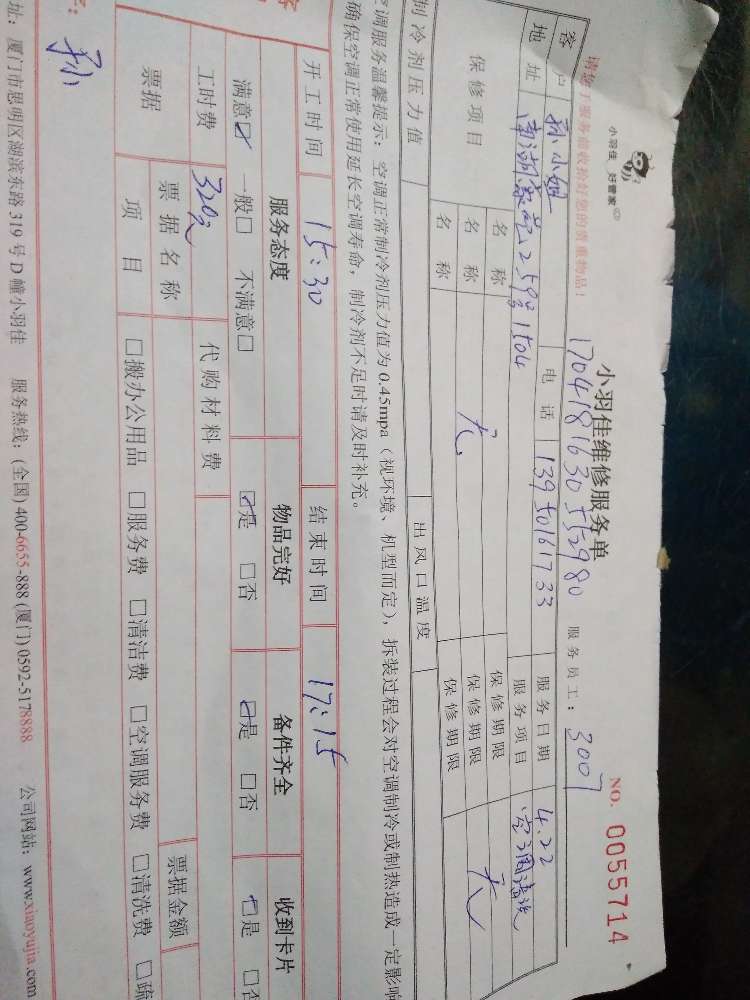 小羽佳 好管家
请您于服务前收拾好您的贵重物品！
小羽佳维修服务单
NO. 0055714
1704181630552980 服务员工： 3007
客户 孙小姐 电话 13950161733 服务日期 4.22
地址 南湖豪苑259号1504 服务项目 空调清洗
保修项目 名称 无 保修期限 无
名称 保修期限
名称 保修期限
制冷剂压力值 出风口温度
空调服务温馨提示：空调正常制冷剂压力值为 0.45mpa（视环境、机型而定），拆装过程会对空调制冷或制热造成一定影响
确保空调正常使用延长空调寿命，制冷剂不足时请及时补充。
开工时间 15:30 结束时间 17:15
服务态度 物品完好 备件齐全 收到卡片
满意☑ 一般□ 不满意□ ☑是 □否 ☑是 □否 ☑是 □否
工时费 320元 代购材料费
票据 票据名称 票据金额
项目 □搬办公用品 □服务费 □清洁费 □空调服务费 □清洗费 □疏
字： 孙
址：厦门市思明区湖滨东路 319 号 D 幢小羽佳 服务热线：(全国) 400-6655-888 (厦门) 0592-5178888 公司网站：www.xiaoyujia.com